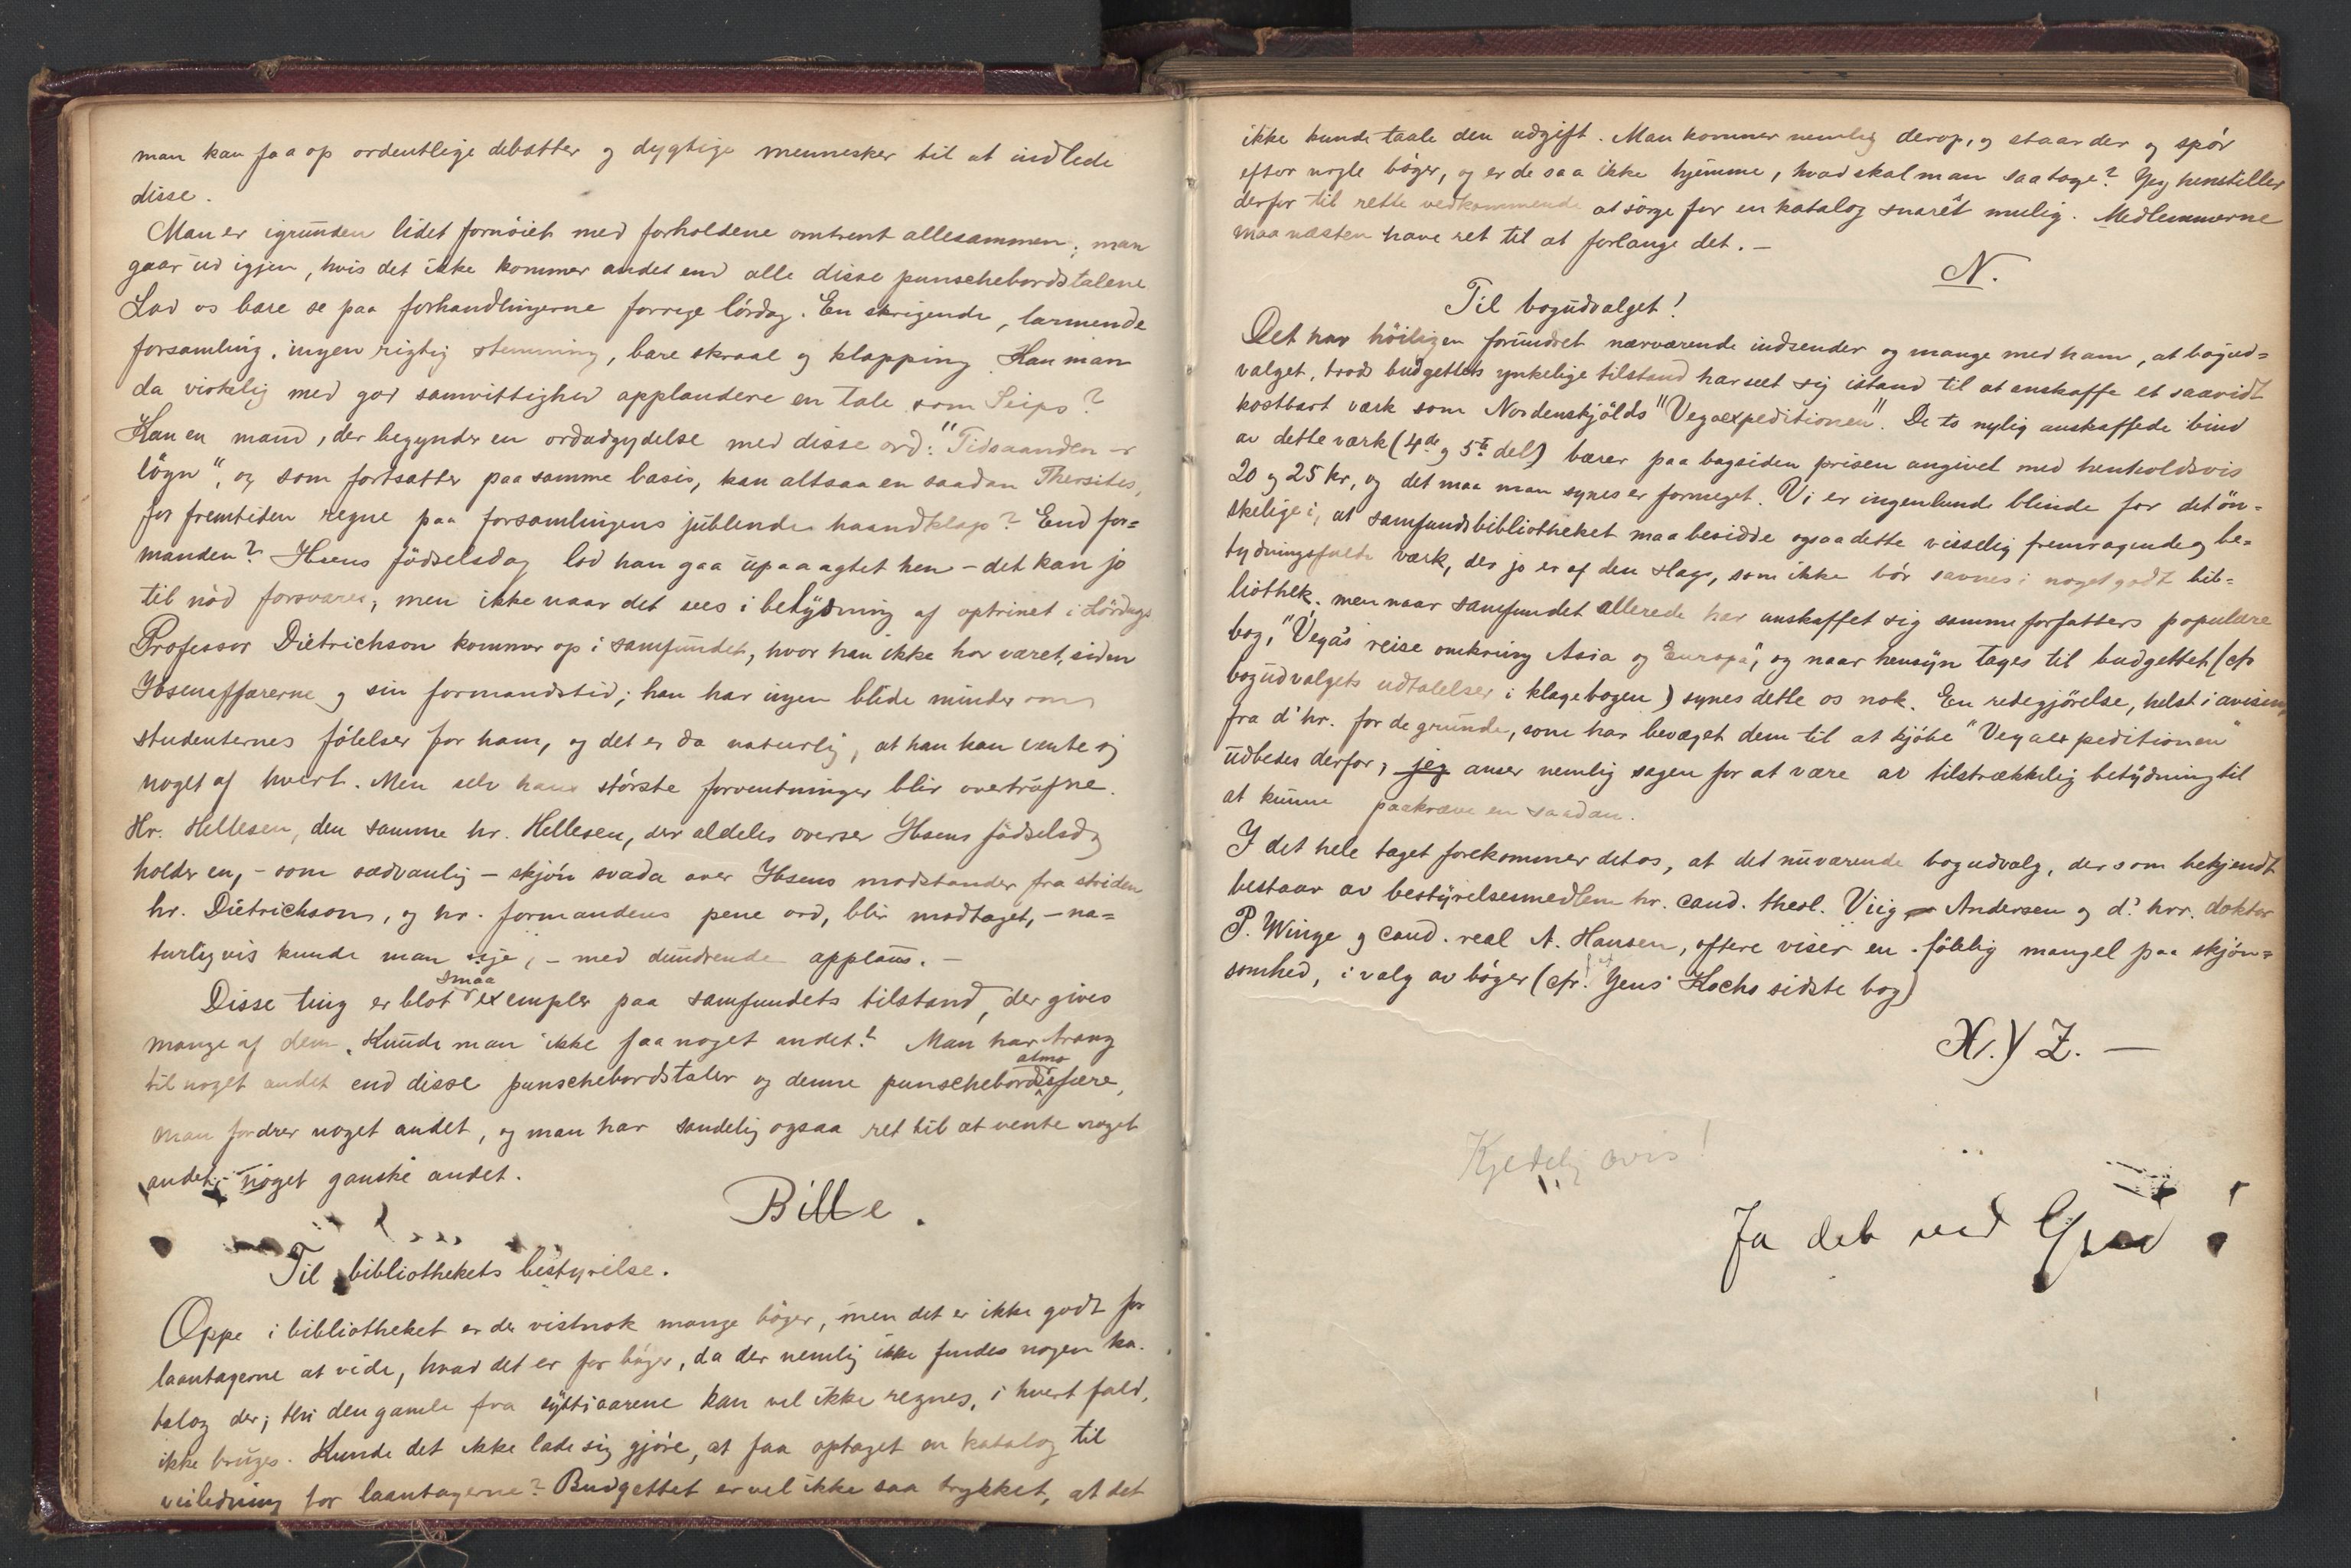 man kan faa op ordentlige debatter og dygtige mennesker til at indlede
disse.
Man er igrunden lidet fornöiet med forholdene omtrent allesammen; man
gaar ud igjen, hvis det ikke kommer andet end alle disse punschebordstalene
Lad os bare se paa forhandlingerne forrige lördag. En skrigende, larmende
forsamling, ingen rigtig stemning, bare skraal og klapping. Kan man
da virkelig med god samvittighed applaudere en tale som Seips?
Kan en mand, der begynder en ordudgydelse med disse ord: "Tidsaanden er
lögn", og som fortsætter paa samme basis, kan altsaa en saadan Thersites,
for fremtiden regne paa forsamlingens jublende haandklap? End for=
manden? Ibsens födselsdag lod han gaa upaaagtet hen - det kan jo
til nöd forsvares, men ikke naar det sees i belysning af optrinet i Lördags
Professor Dietrichson kommer op i samfundet, hvor han ikke har været, siden
Ibsenaffærerne og sin formandstid; han har ingen blide minder om
studenternes fölelser for ham, og det er da naturlig, at han kan vente sig
noget af hvert. Men selv hans störste forventninger blir overtrufne.
Hr. Hellesen, den samme hr. Hellesen, der aldeles overser Ibsens födselsdag
holder en, - som sædvanlig - skjön svada over Ibsens modstander fra striden
hr. Dietrichson, og hr. formandens pene ord, blir modtaget, - na=
turligvis kunde man sige, - med dundrende applaus. -
Disse ting er blot smaa exempler paa samfundets tilstand, der gives
mange af dem. Kunde man ikke faa noget andet? Man har trang
til noget andet end disse punschebordstaler og denne punschebordsatmosfære,
man fordrer noget andet, og man har sandelig ogsaa ret til at vente noget
andet; - noget ganske andet.
Bille.
Til bibliothekets bestyrelse.
Oppe i bibliotheket er der vistnok mange böger, men det er ikke godt for
laantagerne at vide, hvad det er for böger, da der nemlig ikke findes nogen ka=
talog der; thi den gamle fra syttiaarene kan vel ikke regnes, i hvert fald,
ikke bruges. Kunde det ikke lade sig gjöre, at faa optaget en katalog til
veiledning for laantagerne? Budgettet er vel ikke saa trykket, at det
ikke kunde taale den udgift. Man kommer nemlig derop, og staar der og spör
efter nogle böger, og er de saa ikke hjemme, hvad skal man saa tage? Jeg henstiller
derfor til rette vedkommende at sörge for en katalog snarest mulig. Medlemmerne
maa næsten have ret til at forlange det. -
N.
Til bogudvalget!
Det har höiligen forundret nærværende indsender og mange med ham, at bogud=
valget, trods budgettets ynkelige tilstand har seet sig istand til at anskaffe et saavidt
kostbart værk som Nordenskjölds "Vegaexpeditionen". De to nylig anskaffede bind
av dette værk (4de og 5te del) bærer paa bagsiden prisen angivet med henholdsvis
20 og 25 kr, og det maa man synes er formeget. Vi er ingenlunde blinde for det ön=
skelige i, at samfundsbibliotheket maa besidde ogsaa dette visselig fremragende og be=
tydningsfulde værk, der jo er af den slags, som ikke bör savnes i noget godt bib=
liothek; men naar samfundet allerede har anskaffet sig samme forfatters populære
bog, "Vegas reise omkring Asia og Europa", og naar hensyn tages til budgettet (cfr
bogudvalgets udtalelser i klagebogen) synes dette os nok. En redegjörelse, helst i avisen,
fra d'hr. for de grunde, som har bevæget dem til at kjöbe "Vegaexpeditionen"
udbedes derfor; jeg anser nemlig sagen for at være av tilstrækkelig betydning til
at kunne paakræve en saadan.
I det hele taget forekommer det os, at det nuværende bogudvalg, der som bekjendt
bestaar av bestyrelsesmedlem hr. cand. theol. Viig Andersen og d'hrr. doktor
P. Winge og cand. real A. Hansen, oftere viser en fölelig mangel paa skjön=
somhed, i valg av böger (cfr. Jens Kochs sidste bog)
X. Y Z. -
Kjedelig avis!
Ja det ved Gud!